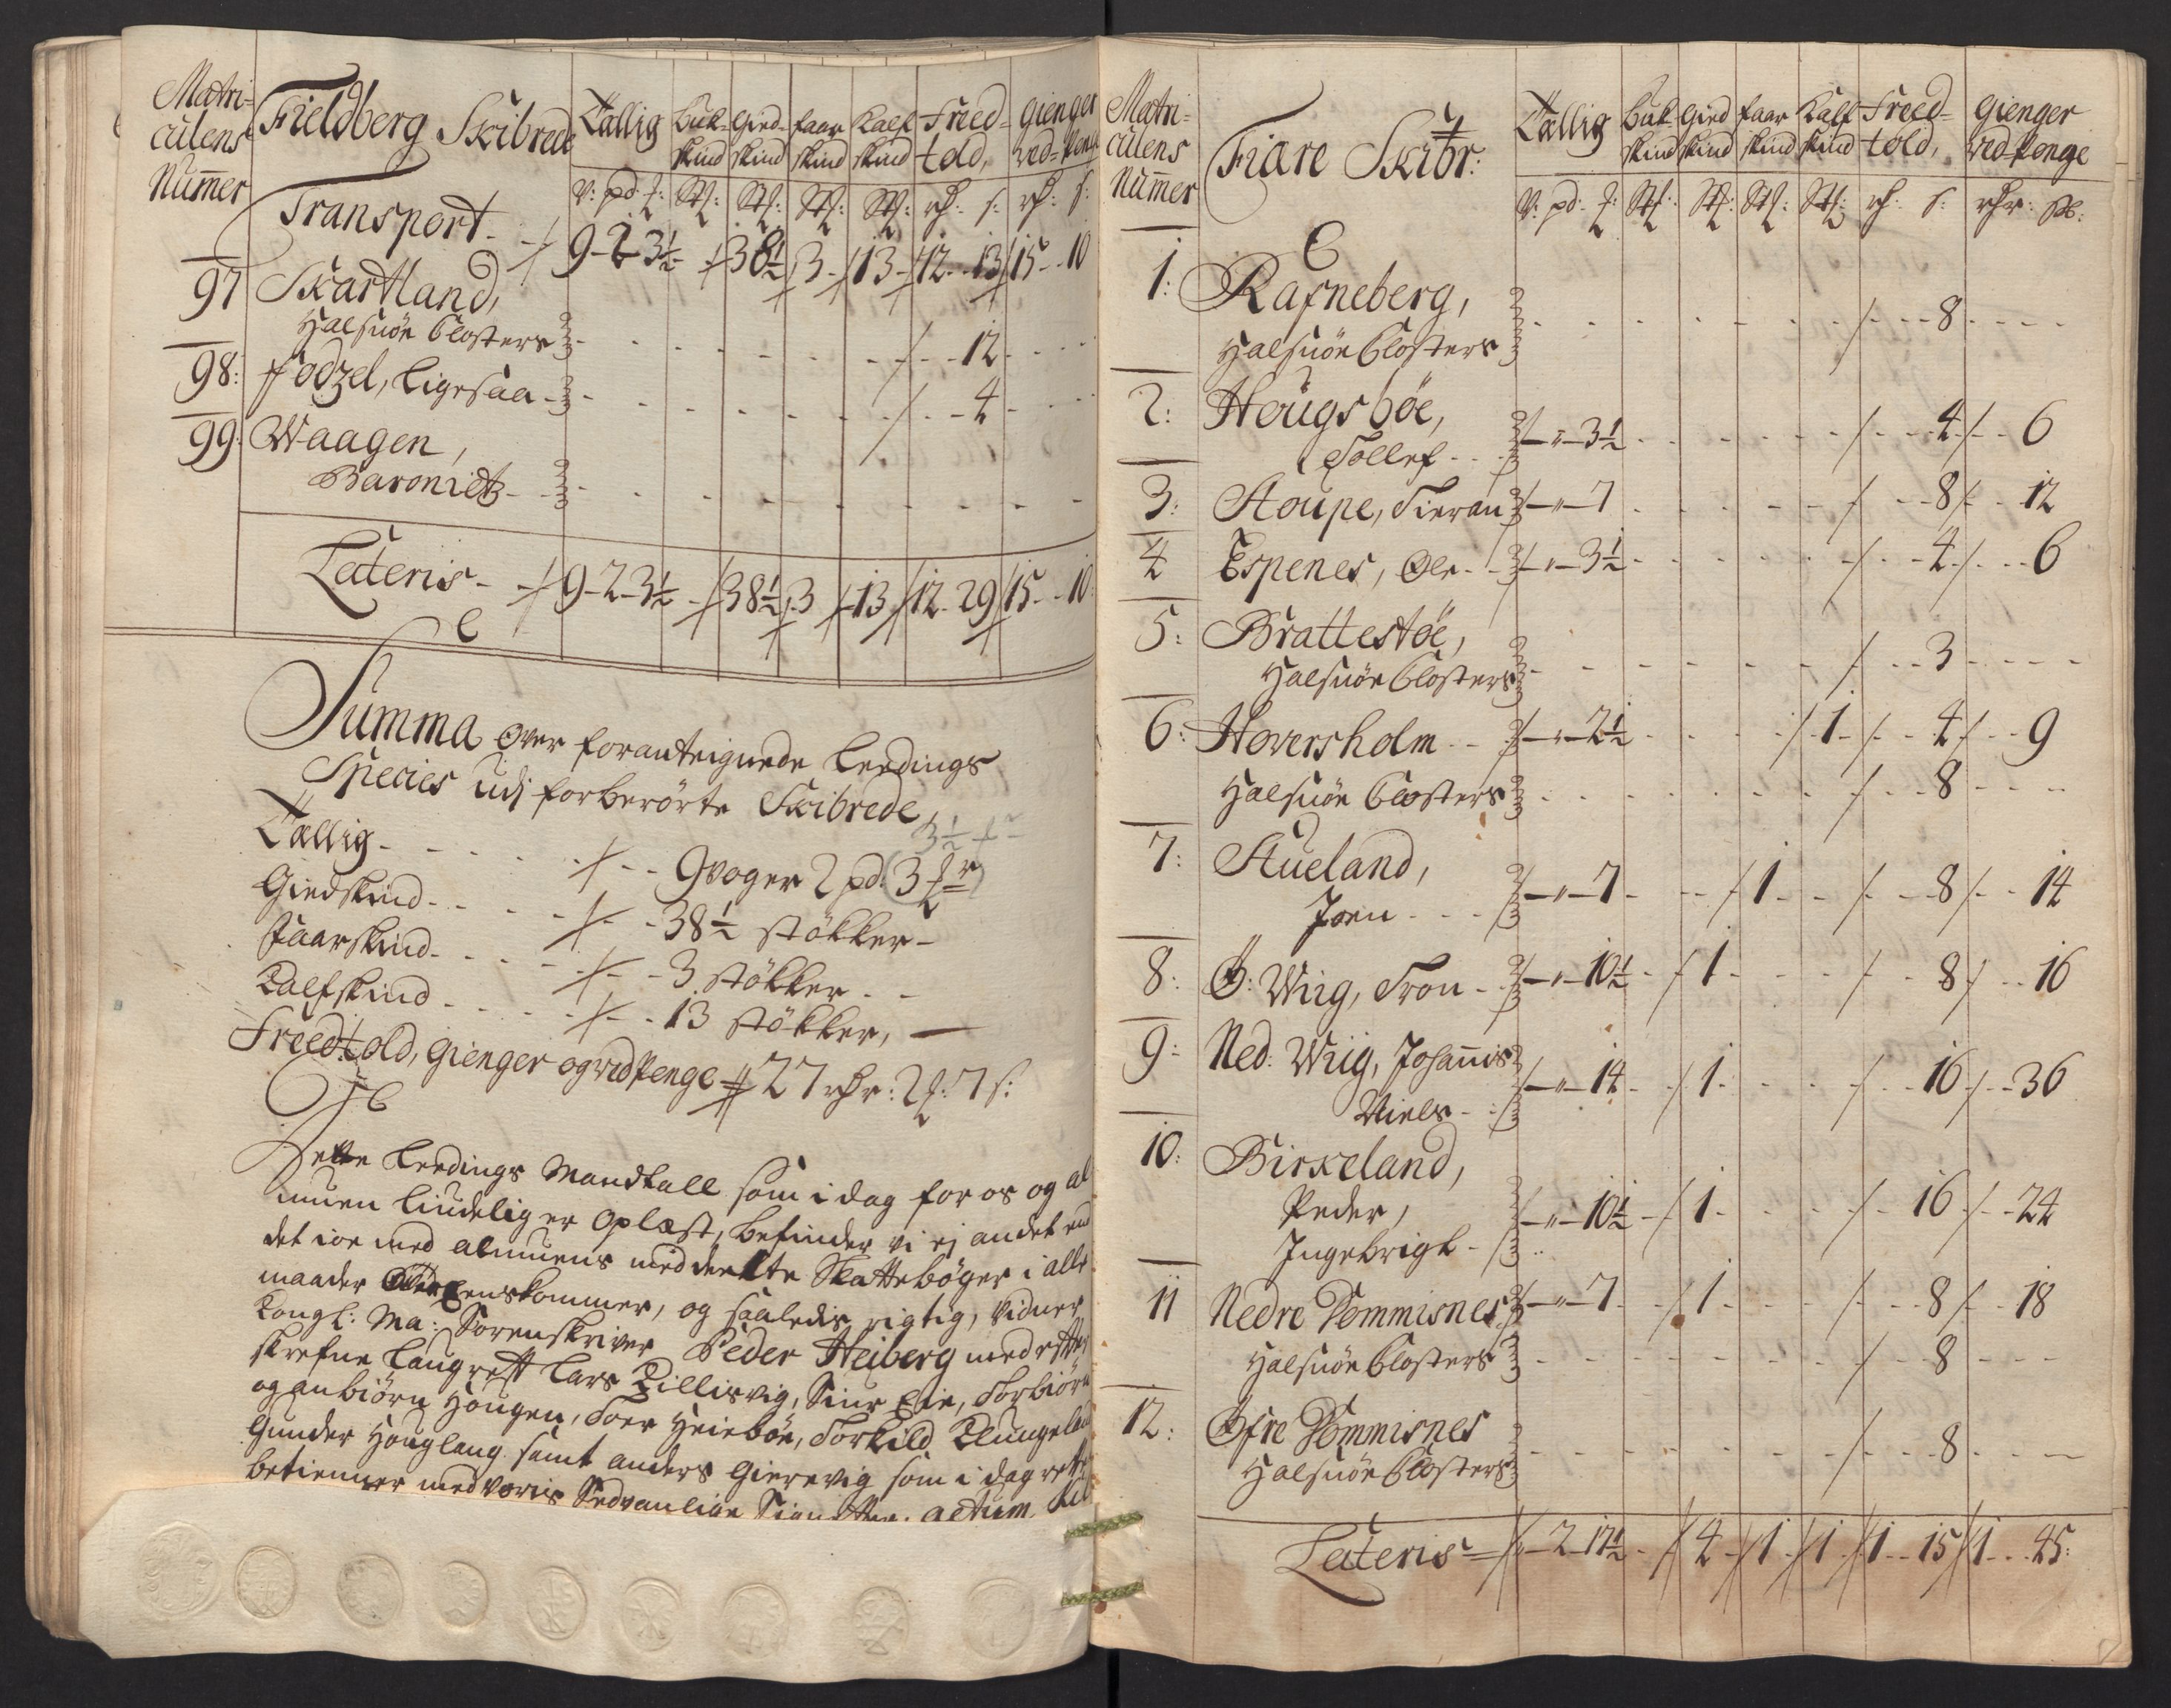 Matri-
culens
Nummer
Fieldberg Skibrede
Tallig
Buk-
skind
Gied-
skind
faar
skind
Kalf
skind
Freed-
told,
Gienger
ved-Penge
V: pd: f: Stk: Stk: Stk: Stk: rd: s: rd: s:
Transport - 9-2-3½ - 38½ 3 - 13 - 12 - 13 15 - 10
97 Skartland,
Halsnöe Closters - - - - - 12 - -
98: fodzel, ligesaa - - - - - 4 - -
99: Waagen,
Baroniets - - - - - -
Lateris - 9-2-3½ - 38½ 3 13 12-29 15 - 10:
Summa over foranteignede Leedings
Species udj forberörte Skibrede,
3½
Tallig - - - - 9 voger 2 pd: 3
Giedskind - - - - 38½ stökker -
Faarskind - - - - 3 stökker - -
Kalfskind - - - - 13 stökker,
Freedtold, gienger og ved Penge 27 rdr: 2 7 s:
Dette Leedings Mandtall som i dag for os og al
muen liudelig er oplæst, befinder vi ej andet end
det ioe med almuens meddeelte Skatteböger i alle
maader overeenskommer, og saaledis rigtig, vidner
Kongl: Ma: Sorenskriver Peder Heiberg med efter
skrefne Laugrett Lars Zillisvig, Siur Eie, Torbiörn
og anbiörn Hougen, Toer Heieböe, Torkild Klungeland
Gunder Houglang samt anders Gierevig som i dag rette
betienner med voris Sedvanlige Signetter. Actum
Matri-
culens
Nummer
Fiære Skibr:
Tællig
Buk
skind
Gied
skind
faar
skind
Kalf
skind
Freed-
told,
Gienger
ved Penge
V: pd: f: Stk: Stk: Stk: Stk: rd: s: rdr: sk:
1: Rafneberg,
Halsnöe Closters - - - - - 8 - - -
2: Hougsböe,
Tollef - - 3½ - - - - 4 - - 6
3: Stoupe, Sieran - 7 - - - - 8 - - 12
4 Espenes, Ole - - 3½ - - - - 4 - - 6
5: Brattestöe,
Halsnöe Closters - - - - - 3 - - -
6: Hoversholm - - 2½ - - - 1 - 4 - - 9
Halsnöe Closters - - - - - 8 - - -
7: Stueland,
Joen - - - 7 - - 1 - - 8 - - 14
8: Ö: Wiig, Tron - 10½ - 1 - - - 8 - - 16
9: Ned: Wiig, Johannis
Niels - - 14 - 1 - - - 16 - - 36
10: Birkeland,
Peder,
Ingebrigt - 10½ - 1 - - - 16 - - 24
11 Nedre Vommisnes - 7 - 1 - - - 8 - - 18
Halsnöe Closters - - - - - 8 - - -
12: Öfre Vommisnes
Halsnöe Closters - - - - - 8 - - -
Lateris - 2-17½ - 4 - 1 - 1 - 1 - 15 1 - - 45: